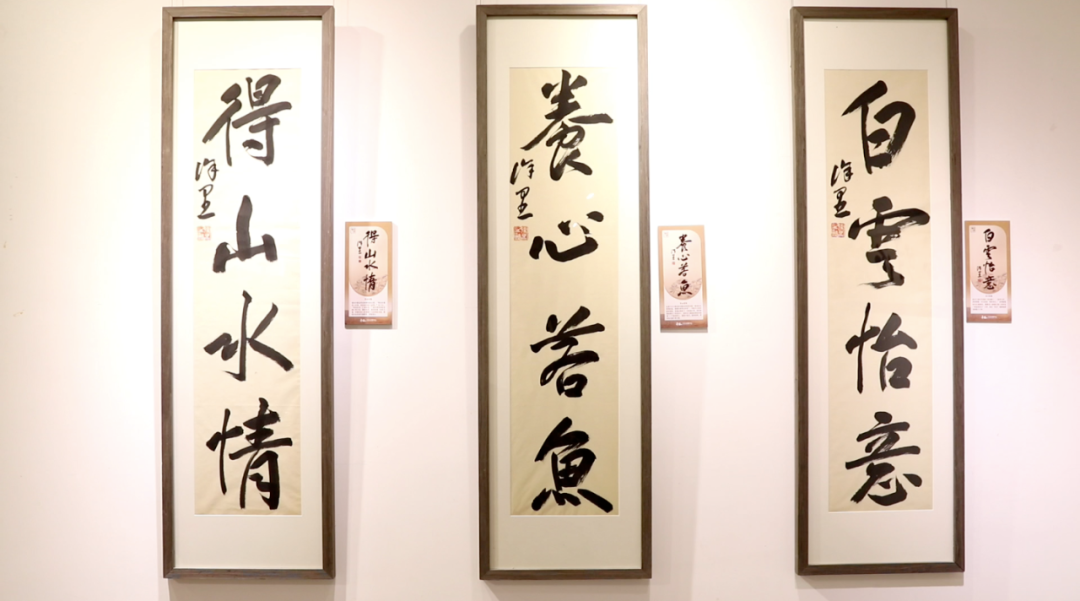 得山水情
徐里
得山水情
養心若魚
徐里
養心若魚
白雲怡意
徐里
白雲怡意